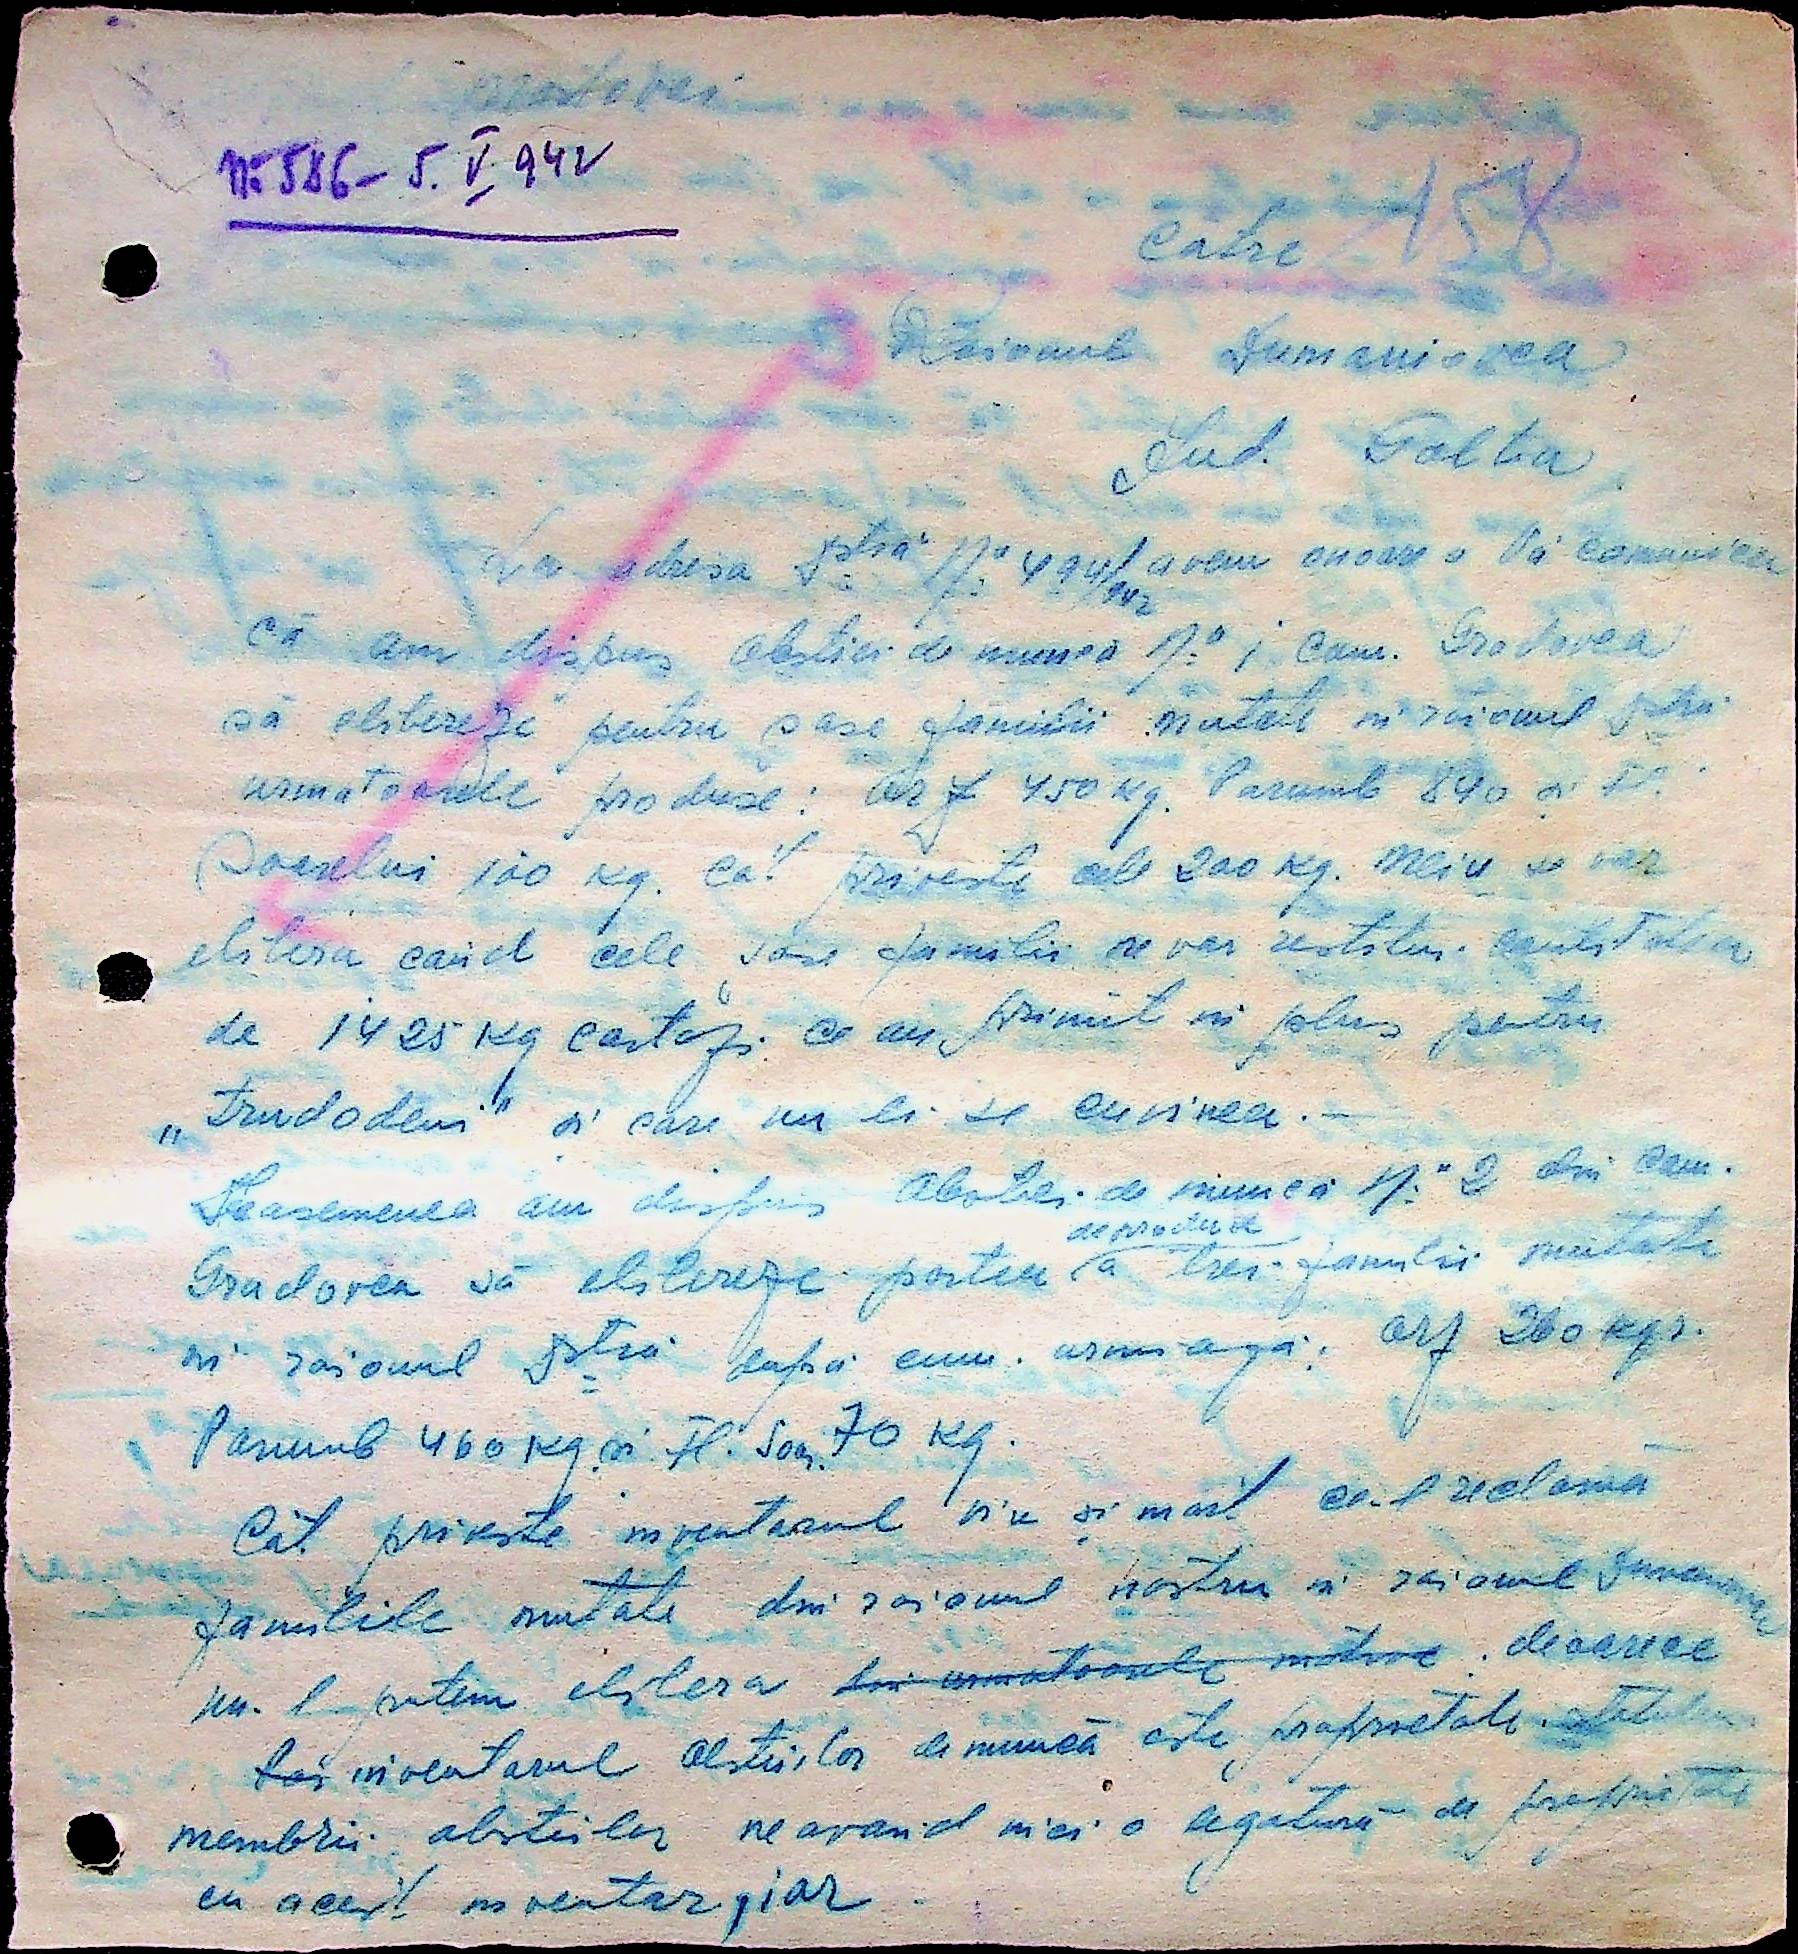 No 586 - 5. V. 942
158
Catre
Raionul Dumaniovca
Jud. Golta
La adresa Dstră No 494/942 avem onoare a Vă comunica
că am dispus obștiei de munca No 1 com. Gradovca
să elibereze pentru șase familii mutate in raionul Dstră
urmatoarele produse: orz 450 kg. Parumb 840 si Fl.
Soarelui 100 kg. Cât priveste cele 200 kg. Meiu se vor
elibera când cele șase familii ne vor restitui cantitatea
de 1425 kg cartofi ce au primit in plus pentru
„Trudodeni" si care nu li se cuvinea. —
Deasemenea am dispus Obstiei de munca No 2 din com.
de produse
Gradovca să elibereze partea a trei familii mutate
in raionul Dstră după cum urmează: orz 260 kgr.
Parumb 460 kg. si Fl. Soar. 70 kg.
Cât priveste inventarul viu și mort ce-l reclamă
familiile mutate din raionul nostru in raionul Dumaniovca
nu-l putem elibera din urmatoarele motive. deoarece
inventarul Obstiilor de muncă este proprietate
membrii obstiilor neavand nici o legatură de proprietate
cu acest inventar, iar